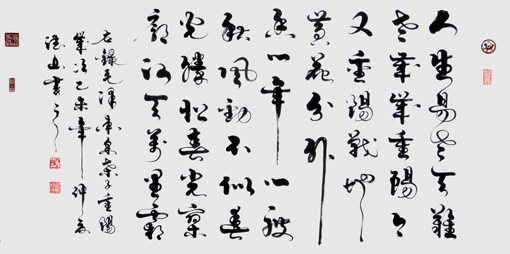 人生易老天難
老歲歲重陽今
又重陽戰地
黃花分外
香一年一度
秋風勁不似春
光勝似春光寥
廓江天萬里霜
右錄毛澤東采桑子重陽
乙未年仲夏
書